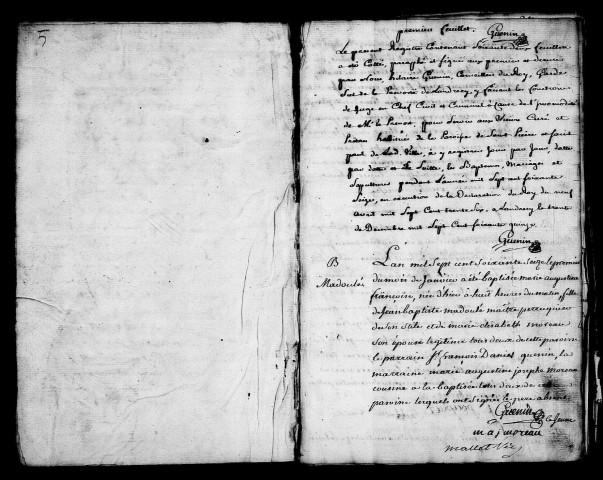 5
premier feuillet. Guenin
Le present Registre Contenant Soixante deux feuillets
a été Cotté, paraphé et signé aux premier et dernier
par Nous, Guenin, Conseiller du Roy, Garde
Scel de la Prevosté de Landrecy, y faisant les fonctions
de Juge en Chef Civil et Criminel a Cause de l'
de Mr. le Prevost, pour Servir aux Sieurs Curé et
habitué de la Paroisse de Saint Pierre et
de Lad. Ville, a y registrer Jour par Jour, datte
par datte et de Suitte, les Baptemes, Mariages et
Sepultures pendant l'année mil Sept cent soixante
Seize, en execution de la Declaration du Roy du neuf
avril mil Sept Cent trente Six, a Landrecy le trente
de Decembre mil Sept Cent Soixante quinze
Guenin
B
Madoulé
L'an mil Sept cent Soixante Seize le premier
du mois de Janvier a été baptisée marie augustine
françoise, née d'hier à huit heures du matin, fille
de Jean baptiste madoulé maître perruquier
de son Stile et de marie elizabeth moreau
Son épouse legitime tous deux de cette paroisse
le parrain Sr. francois Daniel guenin, la
marraine marie augustine josephe moreau
cousine a la baptisée tous deux de cette
paroisse lesquels ont signés le pere absent
Guenin le Jeune
m a j moreau